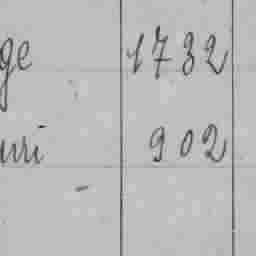 ge 1732
uri 902